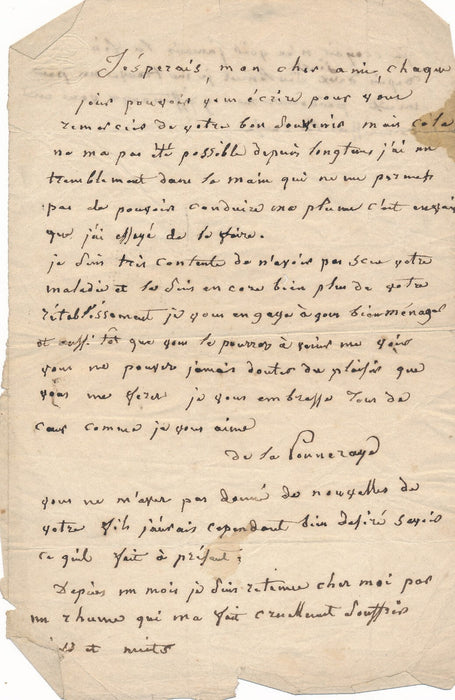 J'espérais, mon cher ami, chaque
jour pouvoir vous écrire pour vous
remercier de votre bon souvenir mais cela
ne ma pas été possible depuis longtems j'ai un
tremblement dans la main qui ne me permet
pas de pouvoir conduire ma plume c'est en vain
que j'ai essayé de le faire.
je suis très contente de n'avoir pas scue votre
maladie et le suis encore bien plus de votre
rétablissement je vous engage à vous bien ménager
et aussi tot que vous le pourrez à venir me voir
vous ne pouvez jamais douter du plaisir que
vous me ferez je vous embrasse tout de
cœur comme je vous aime
de la
vous ne m'avez pas donné de nouvelles de
votre fils j'aurais cependant bien desiré savoir
ce qu'il fait à présent;
Depuis un mois je suis retenue chez moi par
un rhume qui ma fait cruellement souffrir
et nuits